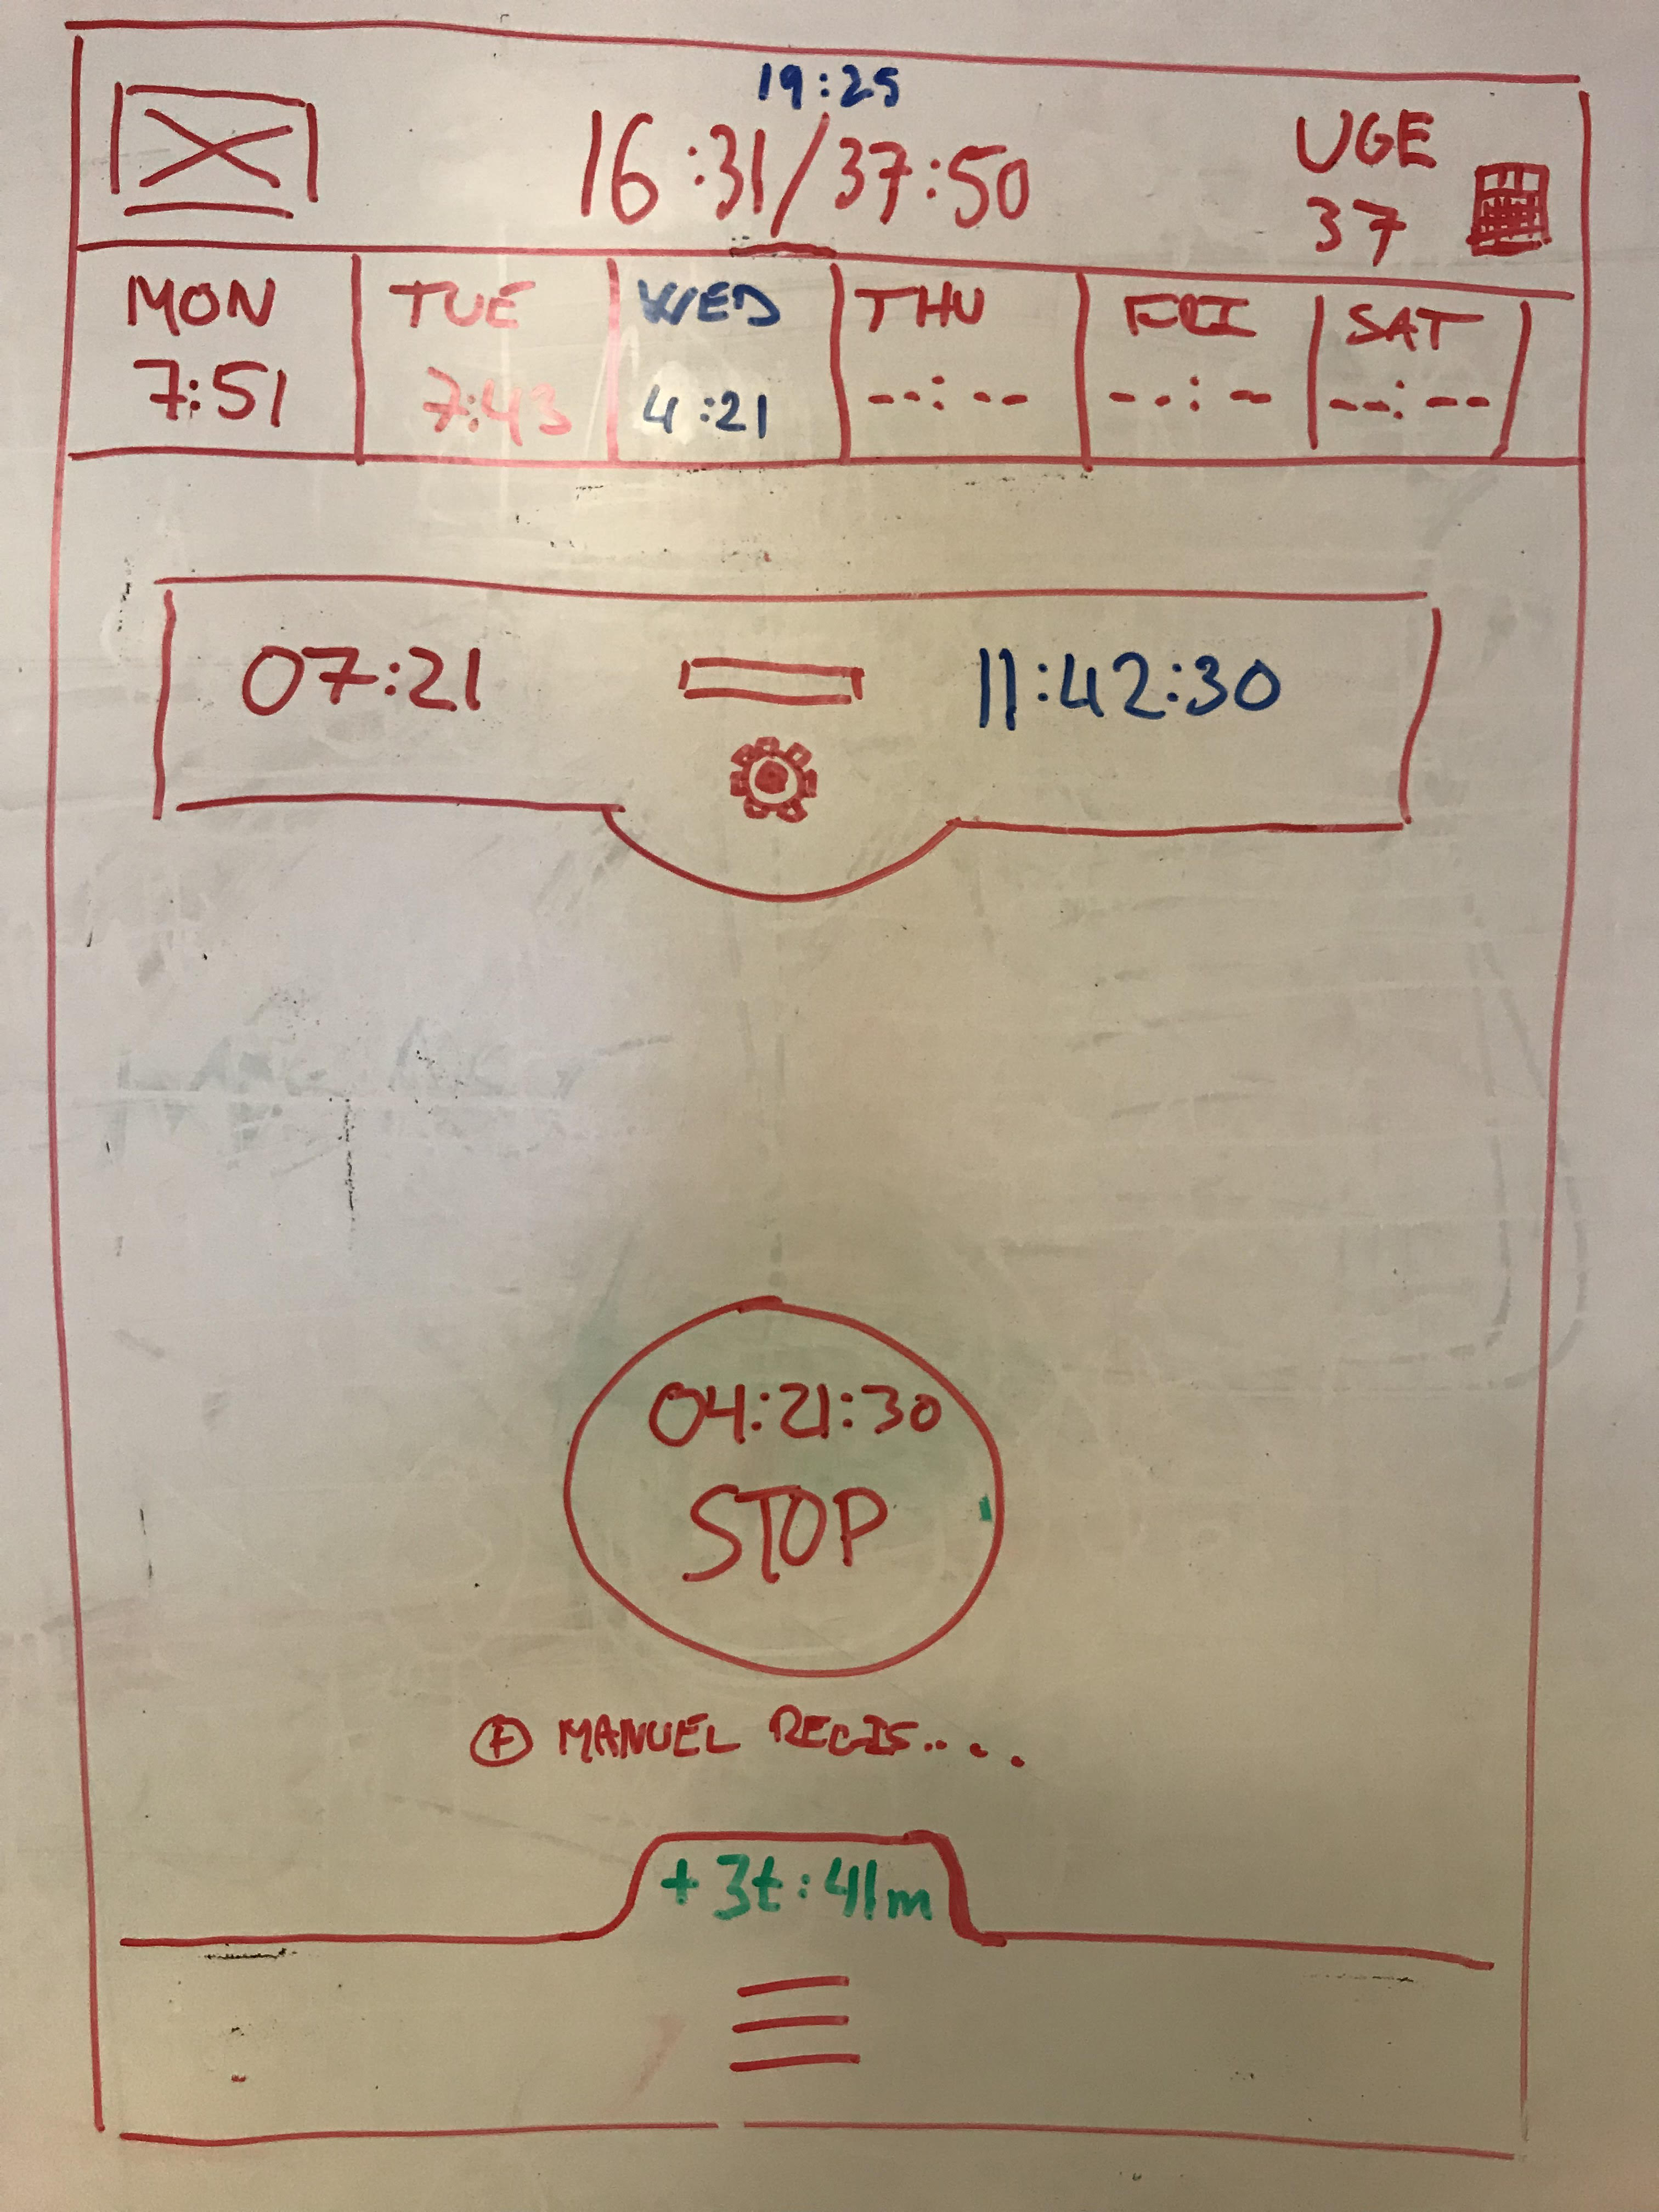 19:25
16:31/37:50
UGE
37
MON TUE WED THU FRI SAT
7:51 7:43 4:21 --:-- --:-- --:--
07:21 11:42:30
04:21:30
STOP
+ MANUEL REGIS....
+3t:41m